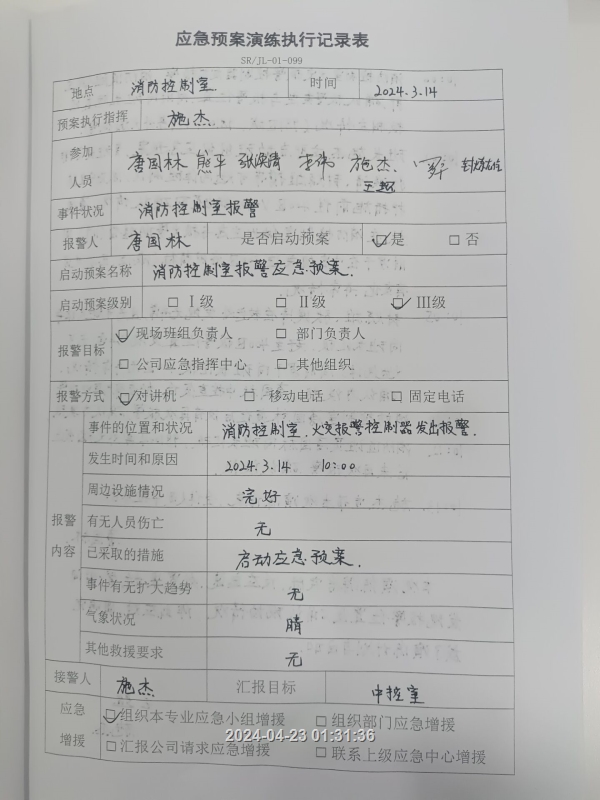 应急预案演练执行记录表
SR/JL-01-099
地点 消防控制室 时间 2024.3.14
预案执行指挥 施杰
参加人员 唐国林 熊平 施杰
事件状况 消防控制室报警
报警人 唐国林 是否启动预案 ☑是 □否
启动预案名称 消防控制室报警应急预案.
启动预案级别 □Ⅰ级 □Ⅱ级 ☑Ⅲ级
报警目标 ☑现场班组负责人 □部门负责人
□公司应急指挥中心 □其他组织
报警方式 ☑对讲机 □移动电话 □固定电话
报警内容
事件的位置和状况 消防控制室.火灾报警控制器发出报警.
发生时间和原因 2024.3.14 10:00
周边设施情况 完好
有无人员伤亡 无
已采取的措施 启动应急预案.
事件有无扩大趋势 无
气象状况 晴
其他救援要求 无
接警人 施杰 汇报目标 中控室
应急增援 ☑组织本专业应急小组增援 □组织部门应急增援
□汇报公司请求应急增援 □联系上级应急中心增援
2024-04-23 01:31:36